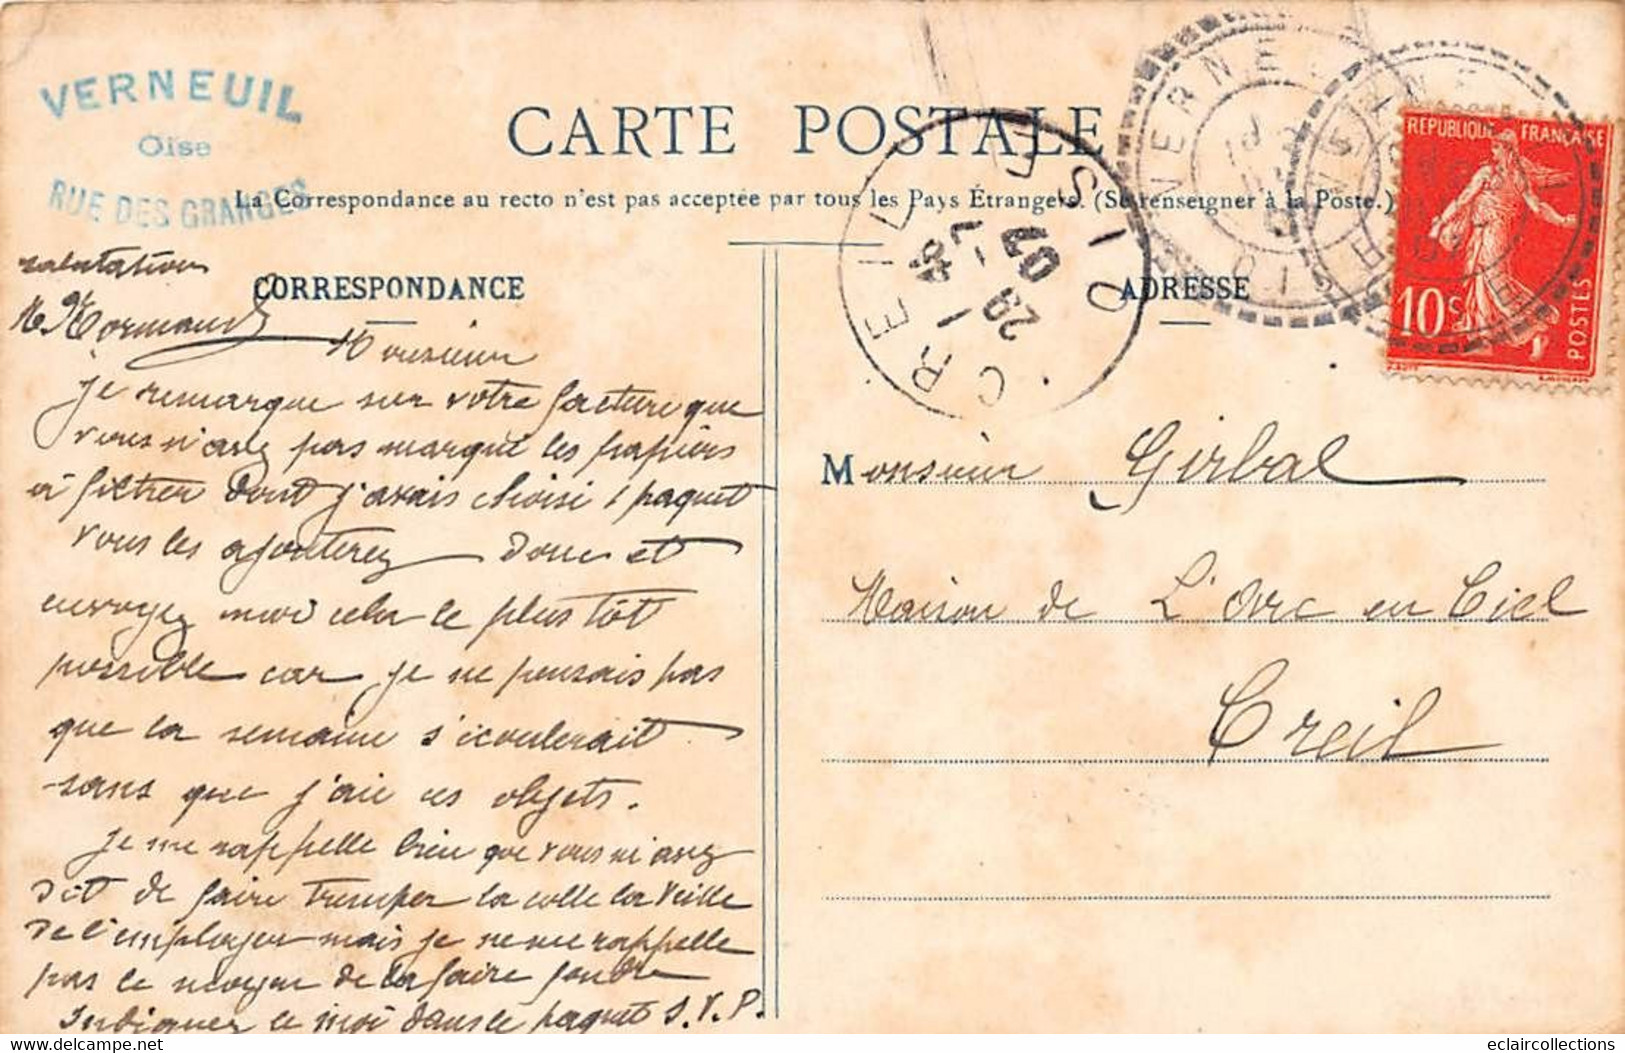 VERNEUIL
Oise
RUE DES GRANGES
CARTE POSTALE
La Correspondance au recto n'est pas acceptée par tous les Pays Étrangers. (Se renseigner à la Poste.)
CORRESPONDANCE
ADRESSE
salutation
Monsieur
je remarque sur votre facture que
vous n'avez pas marqué les papiers
à filtrer dont j'avais choisi 1 paquet
vous les ajouterez donc et
envoyez moi cela le plus tôt
possible car je ne pensais pas
que la semaine s'écoulerait
sans que j'aie ces objets.
je me rappelle bien que vous m'avez
dit de faire tremper la colle la veille
de l'employer mais je ne me rappelle
pas le moyen de la faire fondre
Indiquez le moi dans le paquet S.V.P.
Monsieur Girbal
Maison de L'Arc en Ciel
Creil
CREIL OISE
4 45
29 -7
07
VERNEUIL
OISE
RÉPUBLIQUE FRANÇAISE
10c
POSTES
delcampe.net
eclaircollections